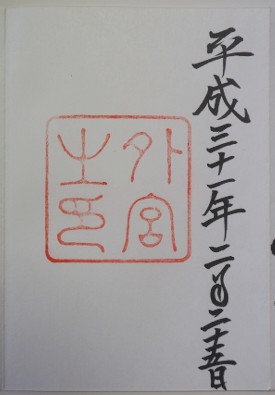 平成三十一年二月二十五日
外宮
之印